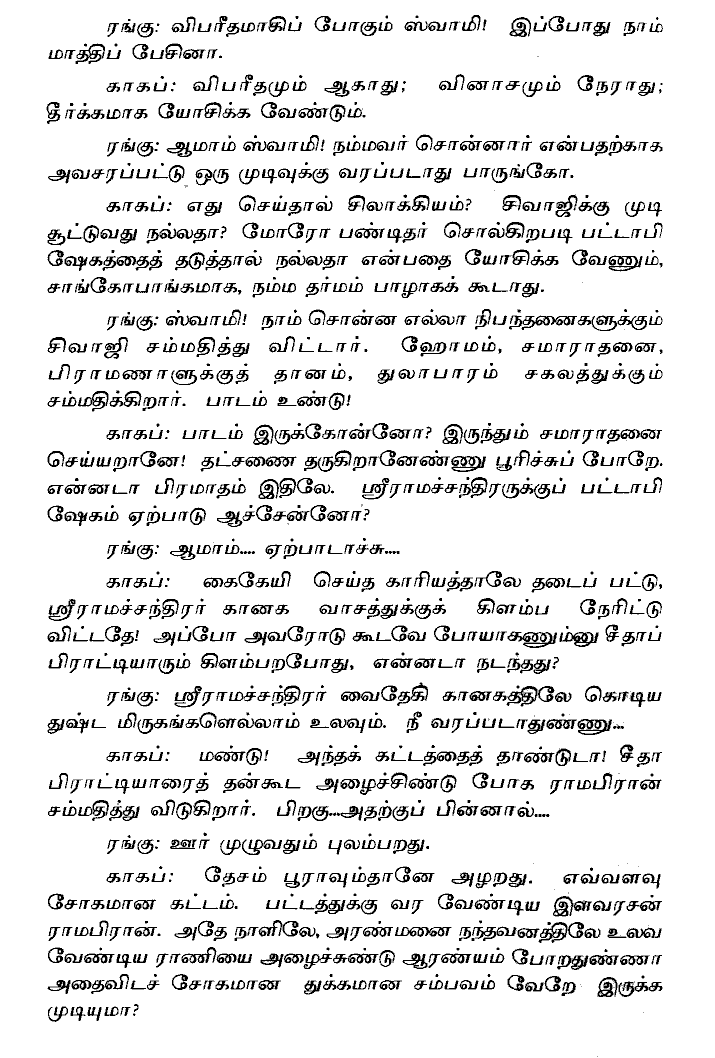 ரங்கு: விபரீதமாகிப் போகும் ஸ்வாமி! இப்போது நாம்
மாத்திப் பேசினா.
காகப்: விபரீதமும் ஆகாது; வினாசமும் நேராது;
தீர்க்கமாக யோசிக்க வேண்டும்.
ரங்கு: ஆமாம் ஸ்வாமி! நம்மவர் சொன்னார் என்பதற்காக
அவசரப்பட்டு ஒரு முடிவுக்கு வரப்படாது பாருங்கோ.
காகப்: எது செய்தால் சிலாக்கியம்? சிவாஜிக்கு முடி
சூட்டுவது நல்லதா? மோரோ பண்டிதர் சொல்கிறபடி பட்டாபி
ஷேகத்தைத் தடுத்தால் நல்லதா என்பதை யோசிக்க வேணும்,
சாங்கோபாங்கமாக, நம்ம தர்மம் பாழாகக் கூடாது.
ரங்கு: ஸ்வாமி! நாம் சொன்ன எல்லா நிபந்தனைகளுக்கும்
சிவாஜி சம்மதித்து விட்டார். ஹோமம், சமாராதனை,
பிராமணாளுக்குத் தானம், துலாபாரம் சகலத்துக்கும்
சம்மதிக்கிறார். பாடம் உண்டு!
காகப்: பாடம் இருக்கோன்னோ? இருந்தும் சமாராதனை
செய்யறானே! தட்சணை தருகிறானேண்ணு பூரிச்சுப் போறே.
என்னடா பிரமாதம் இதிலே. ஸ்ரீராமச்சந்திரருக்குப் பட்டாபி
ஷேகம் ஏற்பாடு ஆச்சேன்னோ?
ரங்கு: ஆமாம்.... ஏற்பாடாச்சு....
காகப்: கைகேயி செய்த காரியத்தாலே தடைப் பட்டு,
ஸ்ரீராமச்சந்திரர் கானக வாசத்துக்குக் கிளம்ப நேரிட்டு
விட்டதே! அப்போ அவரோடு கூடவே போயாகணும்னு சீதாப்
பிராட்டியாரும் கிளம்பறபோது, என்னடா நடந்தது?
ரங்கு: ஸ்ரீராமச்சந்திரர் வைதேகி கானகத்திலே கொடிய
துஷ்ட மிருகங்களெல்லாம் உலவும். நீ வரப்படாதுண்ணு...
காகப்: மண்டு! அந்தக் கட்டத்தைத் தாண்டுடா! சீதா
பிராட்டியாரைத் தன்கூட அழைச்சிண்டு போக ராமபிரான்
சம்மதித்து விடுகிறார். பிறகு...அதற்குப் பின்னால்....
ரங்கு: ஊர் முழுவதும் புலம்பறது.
காகப்: தேசம் பூராவும்தானே அழறது. எவ்வளவு
சோகமான கட்டம். பட்டத்துக்கு வர வேண்டிய இளவரசன்
ராமபிரான். அதே நாளிலே, அரண்மனை நந்தவனத்திலே உலவ
வேண்டிய ராணியை அழைச்சுண்டு ஆரண்யம் போறதுண்ணா
அதைவிடச் சோகமான துக்கமான சம்பவம் வேறே இருக்க
முடியுமா?